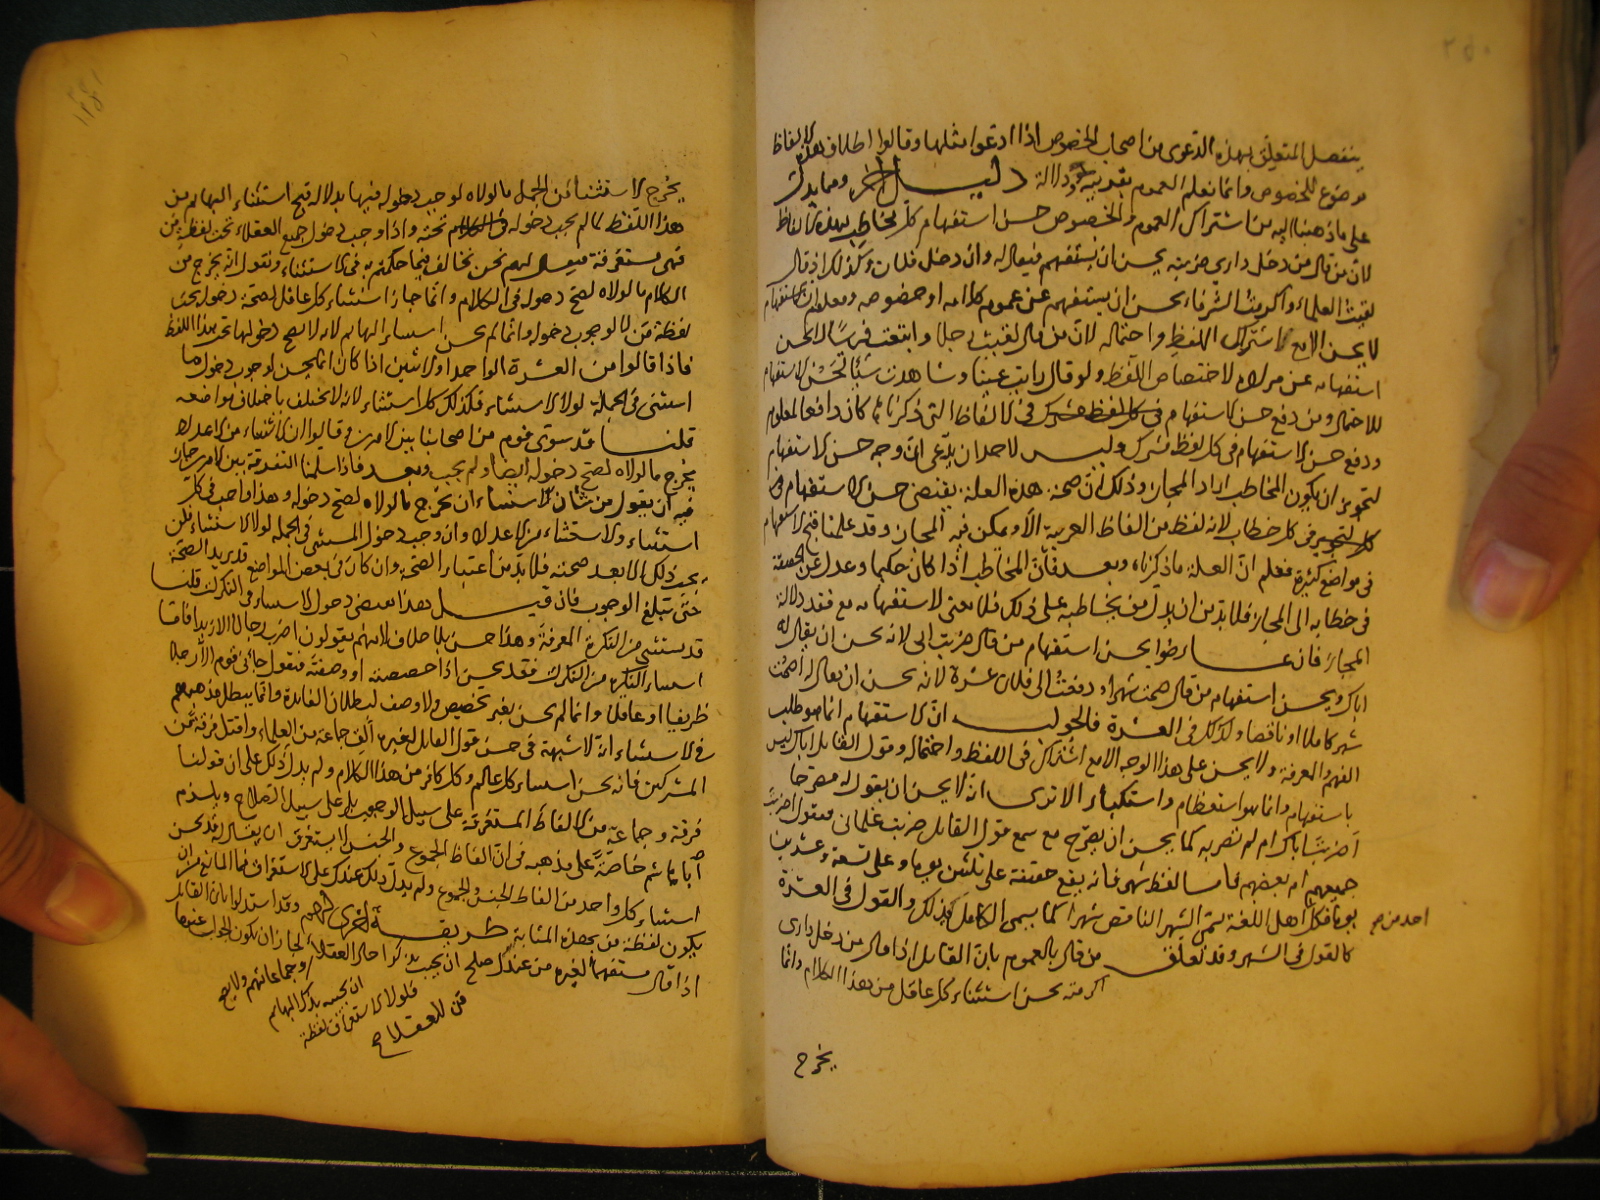 ينفصل المتعلق بهذه الدعوى من اصحاب الخصوص اذا ادعوا مثلها وقالوا اطلاق هذه الالفاظ
موضوع للخصوص وانما نعلم العموم بقرينة ودلالة دليل اخر ومما يدل
على ما ذهبنا اليه من اشتراك العموم والخصوص حسن استفهام كل مخاطب بهذه الالفاظ
لان من قال من دخل داري ضربته يحسن ان يستفهم فيقال له وان دخل فلان وكذلك اذا قال
لقيت العلماء واكرمت الشرفاء يحسن ان يستفهم عن عموم كلامه او خصوصه ومعلوم ان الاستفهام
لا يحسن الا مع اشتراك اللفظ واحتماله لان من قال لقيت رجلا وابتعت فرسا لا يحسن
استفهامه عن مراده لاختصاص اللفظ ولو قال رايت عينا وشاهدت شيئا لحسن الاستفهام
للاحتمال ومن دفع حسن الاستفهام في الالفاظ التي ذكرناها كان دافعا لمعلوم
ودفع حسن الاستفهام في كل لفظ مشترك وليس لاحد ان يدعى ان وجه حسن الاستفهام
لتجويز ان يكون المخاطب اراد المجاز وذلك ان صحة هذه العلة يقتضى حسن الاستفهام في
كل خطاب لانه لا لفظ من الفاظ العربية الا ويمكن فيه المجاز وقد علمنا قبح الاستفهام
في مواضع كثيرة فعلم ان العلة ما ذكرناه وبعد فان المخاطب اذا كان حكيما وعدل عن الحقيقة
في خطابه الى المجاز فلا بد من ان يدل من يخاطبه على ذلك فلا معنى لاستفهامه مع فقد دلالة
المجاز فان عارضوا بحسن استفهام من قال ضربت ابى لانه يحسن ان يقال له
اباك وبحسن استفهام من قال صمت شهرا او دفعت الى فلان عشرة لانه يحسن ان يقال له أصمت
شهر كاملا او ناقصا وكذلك في العشرة فالجواب ان الاستفهام انما هو طلب
الفهم والمعرفة ولا يحسن على هذا الوجه الا مع اشتراك في اللفظ واحتماله وقول القائل اباك ليس
باستفهام وانما هو استعظام واستكبار الا ترى انه لا يحسن ان يقول له مصرحا
أضربت اباك ام لم تضربه كما يحسن ان يصرح مع سمع قول القائل ضربت غلمانى فيقول اضربت
جميعهم ام بعضهم فاما لفظ شهر فانه يقع حقيقة على ثلثين يوما وعلى تسعة وعشرين
يوما فكل اهل اللغة يسمى الشهر الناقص شهرا كما يسمى الكامل كذلك والقول في العشرة
احد من صح
كالقول في الشهر وقد تعلق من قال بالعموم بان القائل اذا قال من دخل دارى
اكرمته يحسن استثناء كل عاقل من هذا الكلام وانما
يخرج
يخرج الاستثناء من الجمل ما لولاه لوجب دخوله فيها بدلالة قبح استثناء البهائم من
هذا اللفظ لما لم يجب دخولها تحته واذا وجب دخول جميع العقلاء تحت لفظ من
فهى مستغرقة فيقال لهم نحن نخالف فيما حكمتم به في الاستثناء ونقول انه يخرج من
الكلام ما لولاه لصح دخوله في الكلام وانما جاز استثناء كل عاقل لصحة دخوله تحت
لفظة من لا لوجوب دخوله وانما لم يحسن استثناء البهائم لانه لا يصح دخولها تحت هذا اللفظ
فاذا قالوا من العشرة الواحد والاثنين اذا كان انما يحسن لوجوب دخول ما
استثنى في الجملة لولا الاستثناء فكذلك كل استثناء لانه لا يختلف باختلاف مواضعه
قلنا قد سوى قوم من اصحابنا بين الامرين وقالوا ان الاستثناء من الاعداد
يخرج ما لولاه لصح دخوله ايضا ولم يجب وبعد فاذا سلمنا التفرقة بين الامرين جاز
فيه ان يقول من شان الاستثناء ان يخرج ما لولاه لصح دخوله وهذا واجب في كل
استثناء والاستثناء من الاعداد وان وجب دخول المستثنى في الجملة لولا الاستثناء فلن
يجب ذلك الا بعد صحته فلا بد من اعتبار الصحة وان كان في بعض المواضع قد يزيد الصحة
حتى تبلغ الوجوب فان قيل هذا يقتضى دخول الاستثناء في النكرات قلنا
قد يستثنى من النكرة المعرفة وهذا حسن بلا خلاف لانهم يقولون اضرب رجالا الا زيدا فاما
استثناء النكرة من النكرات فقد يحسن اذا خصصته او وصفته فنقول جاءنى قوم الا رجلا
ظريفا او عاقلا وانما لم يحسن بغير تخصيص ولا وصف لبطلان الفائدة وانما يبطل مذهبهم
في الاستثناء انه لا شبهة في حسن قول القائل لغيره ألق جماعة من العلماء واقتل فرقة من
المشركين فانه يحسن استثناء كل عالم وكل كافر من هذا الكلام ولم يدل ذلك على ان قولنا
فرقة وجماعة من الالفاظ المستغرقة على سبيل الوجوب بل على سبيل الصلاح ويلزم
ابا هاشم خاصة على مذهبه في ان الفاظ الجموع والجنس لا يستغرق ان يقال له قد يحسن
استثناء كل واحد من الفاظ الجنس والجموع ولم يدل ذلك عندك على الاستغراق فما المانع من ان
يكون لفظة من بهذه المثابة طريقة اخرى لهم وقد استدلوا بان القائل
اذا قال مستفهما لغيره من عندك صلح ان يجيب بذكر احاد العقلاء وجماعاتهم ولا يصح
ان يجيبه بذكر البهائم
فلولا الاستغراق لفظة
من للعقلاء لجاز ان يكون الجواب عنها